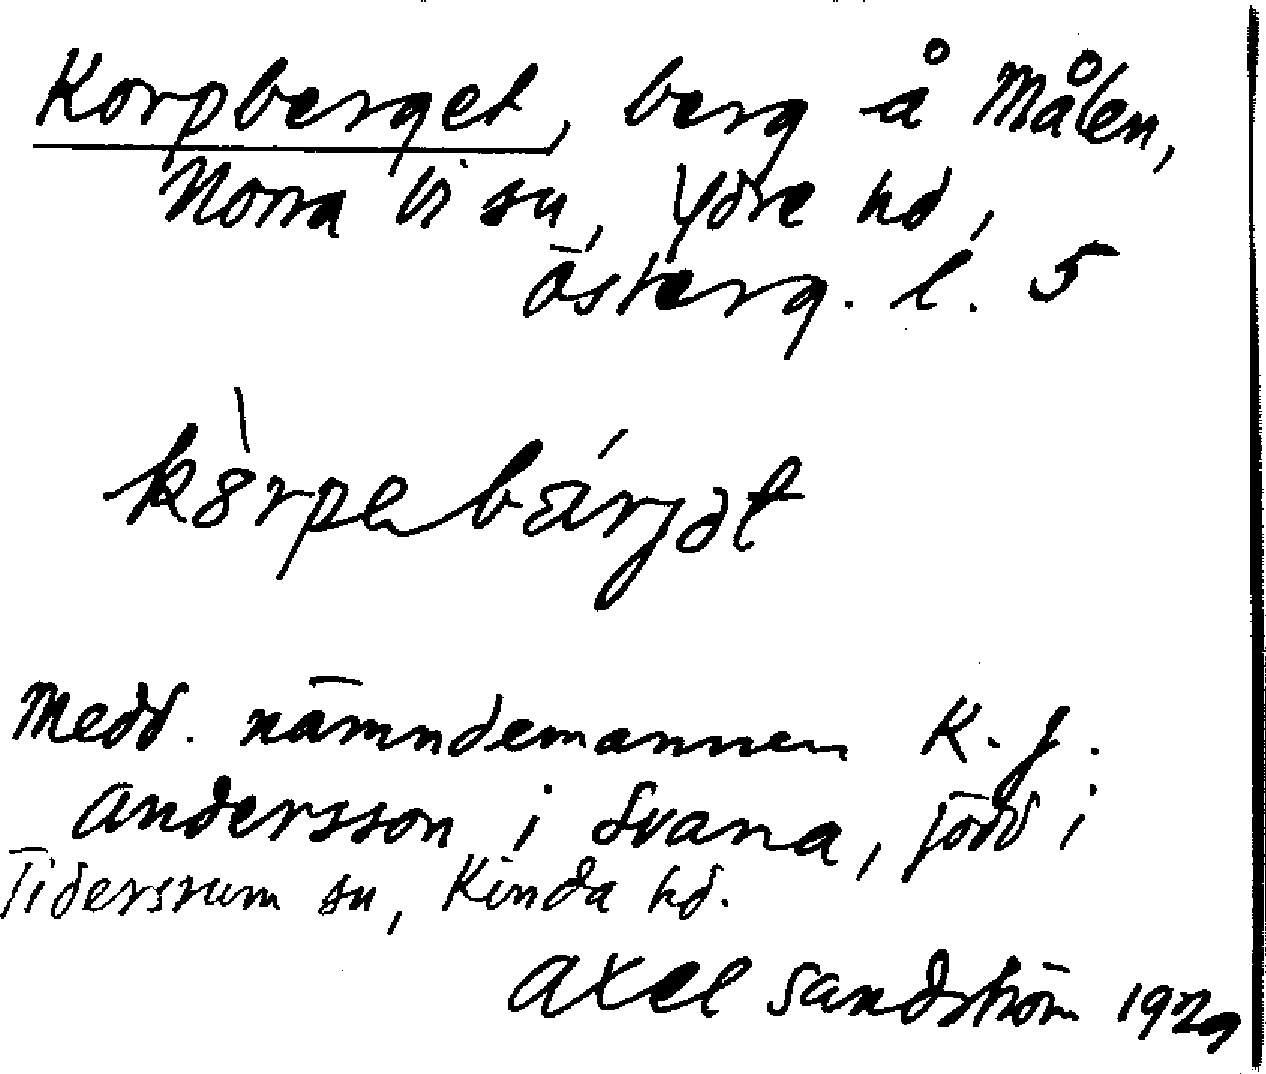 Korpberget, berg å Målen,
Norra Vi sn, Ydre hd,
Österg. l. 5
kȯ̀rpebä́rjət
Medd. nämndemannen K. J.
Andersson i Svana, född i
Tidersrum sn, Kinda hd.
Axel Sandström 1929